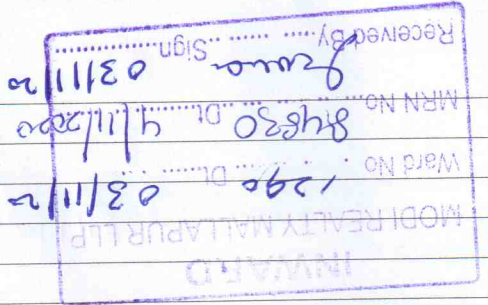 INWARD
MODI REALTY MALLAPUR LLP
Ward No. 1290 Dt. 03/11/20
MRN No. Dt. 4/11/2020
Received By Sign 03/11/20